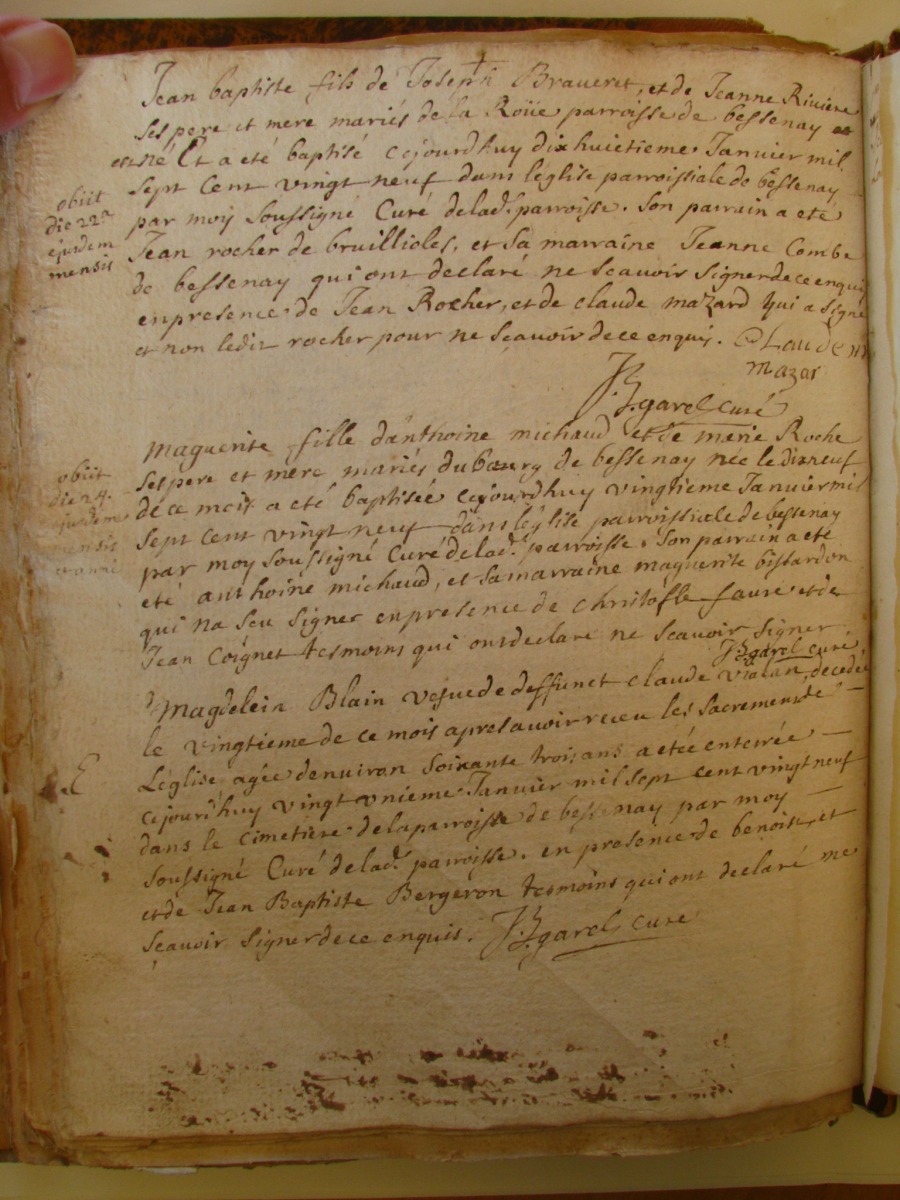 Jean baptiste fils de Joseph Braveret, et de Jeanne Riviere
ses pere et mere mariés de la Roüe parroisse de bessenay
est né Et a eté baptisé cejourdhuy dix huictieme Januier mil
sept Cent vingt neuf dans léglise parroissiale de bessenay
par moy soussigné Curé delad. parroisse. son parrain a eté
Jean rocher de bruillioles, et sa marraine Jeanne Combe
de bessenay qui ont declaré ne scavoir signer de ce enquis
en presence de Jean Rocher, et de claude mazard qui a signé
et non ledit rocher pour ne sçavoir de ce enquis. CLaude
mazar
J.B. garel curé
obiit
die 22a
ejusdem
mensis
maguerite fille danthoine michaud et de marie Roche
ses pere et mere mariés du bourg de bessenay née le dixneuf
de ce mois a eté baptisée cejourdhuy vingtieme Januier mil
sept cent vingt neuf dans léglise parroissiale de bessenay
par moy soussigné Curé delad. parroisse. son parrain a eté
eté anthoine michaud, et sa marraine maguerite bissardon
qui na sceu signer en presence de christofle faure et de
Jean Coignet tesmoins qui ont declaré ne scavoir signer
JB garel curé
obiit
die 24.
ejusdem
mensis
et anni
Magdelein Blain vefue de deffunct claude vialan, decedée
le vingtieme de ce mois apres avoir receu les sacremens de
Léglise agée denuiron soixante trois ans a etée enterrée
cejourdhuy vingt vnieme Januier mil sept cent vingt neuf
dans le cimetiere de la parroisse de bessenay par moy
soussigné Curé delad. parroisse. en presence de benoist, et
et de Jean Baptiste Bergeron tesmoins qui ont declaré ne
sçauoir signer de ce enquis. J.B. garel curé
E